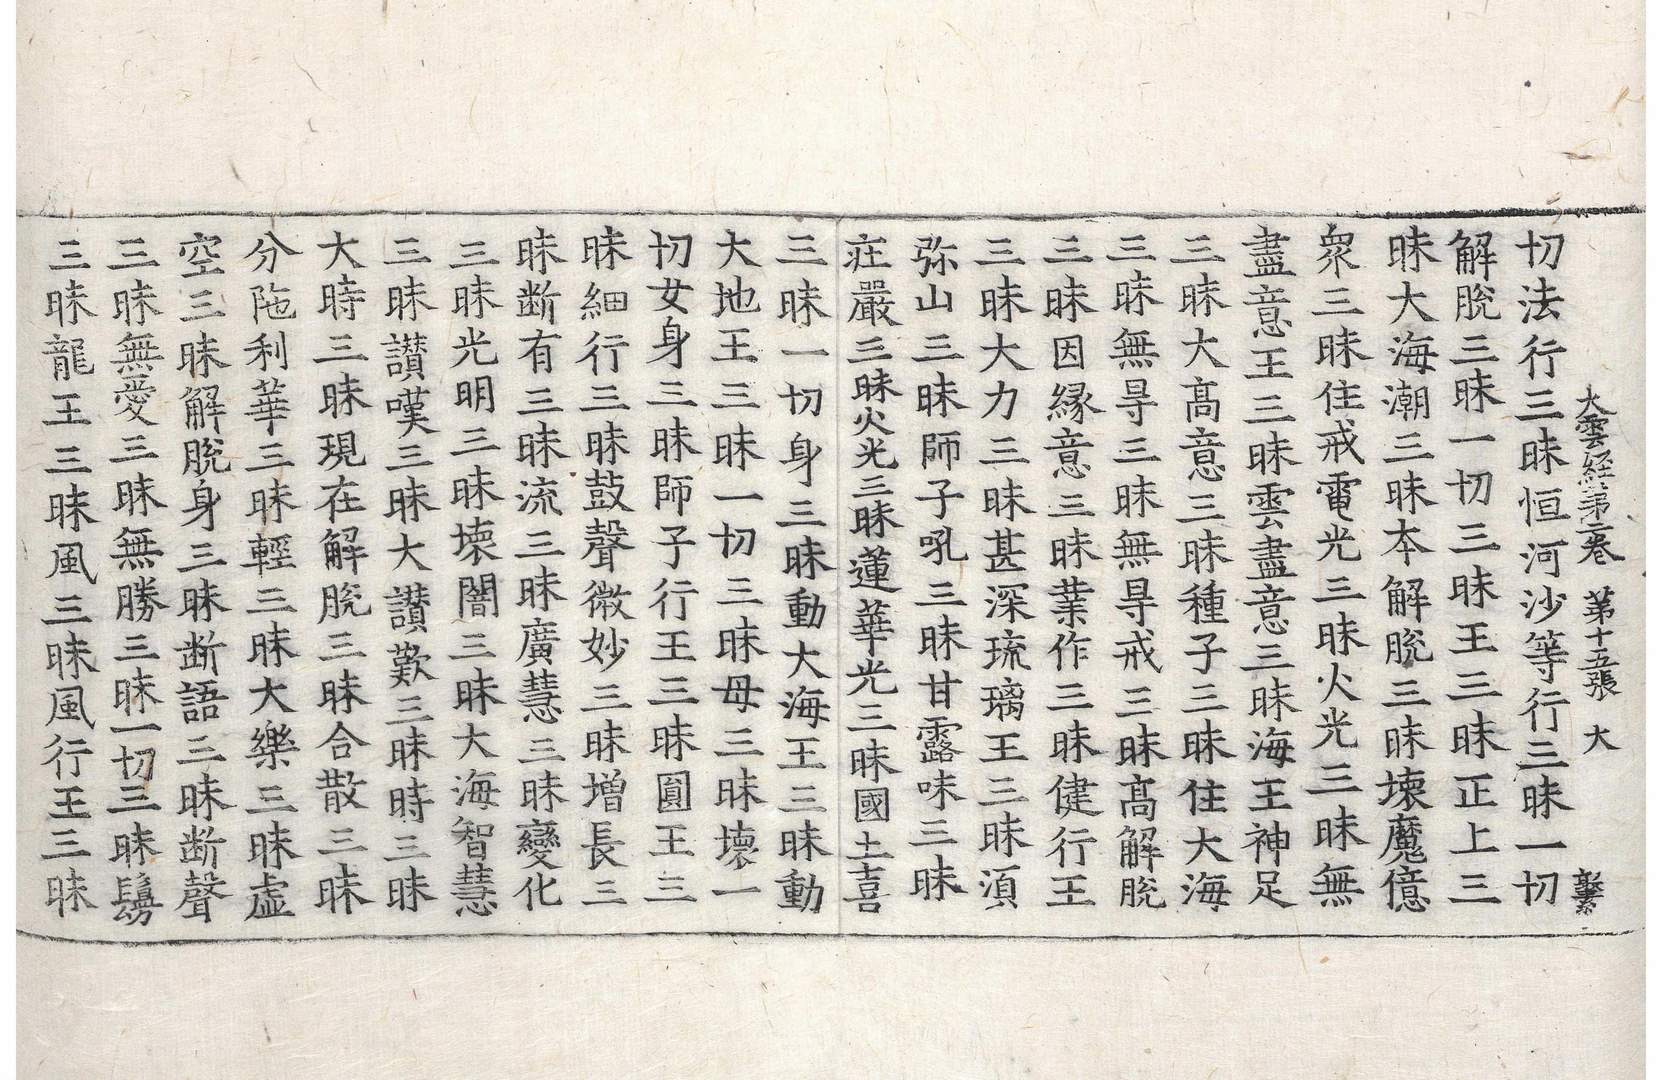 大雲経第二卷 第十五張 大
切法行三昧恒河沙等行三昧一切
解脫三昧一切三昧王三昧正上三
昧大海潮三昧本解脫三昧壊魔億
衆三昧住戒電光三昧火光三昧無
盡意王三昧雲盡意三昧海王神足
三昧大髙意三昧種子三昧住大海
三昧無㝵三昧無㝵戒三昧髙解脫
三昧因緣意三昧業作三昧健行王
三昧大力三昧甚深琉璃王三昧湏
弥山三昧師子吼三昧甘露味三昧
莊嚴三昧火光三昧蓮華光三昧國土喜
三昧一切身三昧動大海王三昧動
大地王三昧一切三昧母三昧壞一
切女身三昧師子行王三昧圓王三
昧細行三昧鼓聲微妙三昧增長三
昧断有三昧流三昧廣慧三昧變化
三昧光明三昧壊闇三昧大海智慧
三昧讃嘆三昧大讃歎三昧時三昧
大時三昧現在解脫三昧合散三昧
分陁利華三昧輕三昧大樂三昧虛
空三昧解脫身三昧断語三昧断聲
三昧無愛三昧無勝三昧一切三昧鬚
三昧龍王三昧風三昧風行王三昧